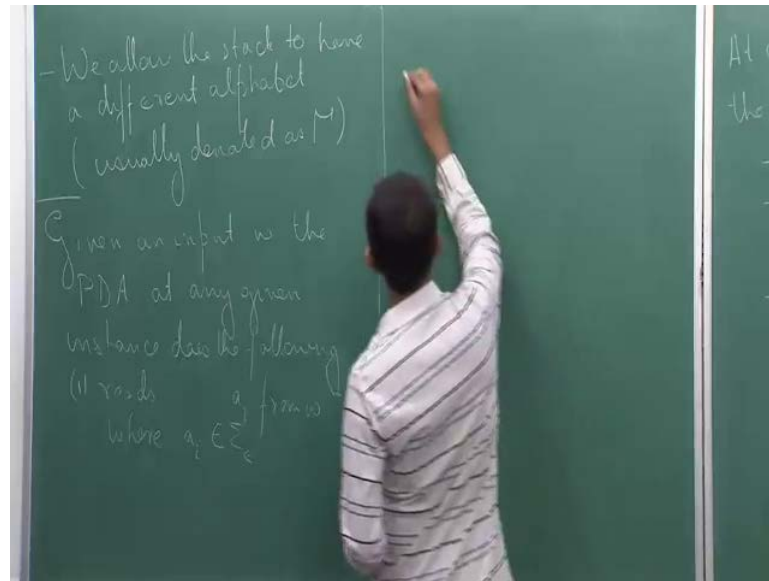 - We allow the stack to have
a different alphabet
(usually denoted as Γ)
Given an input w the
PDA at any given
instance does the following
(1) reads a_i from w
where a_i ∈ Σ_ε
At
the